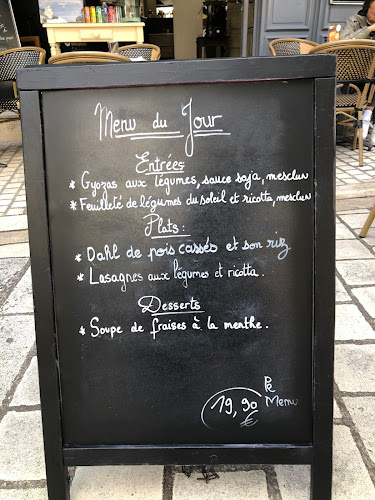 Menu du Jour
Entrées
* Gyozas aux légumes, sauce soja, mesclun
* Feuilleté de légumes du soleil et ricotta, mesclun
Plats :
* Dahl de pois cassés et son riz
* Lasagnes aux légumes et ricotta.
Desserts
* Soupe de fraises à la menthe.
19,90 €
Menu